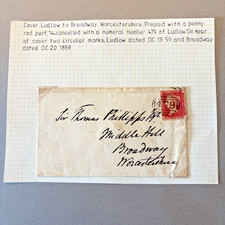 Cover Ludlow to Broadway Worcestershire. Prepaid with a penny
red pert. 14. cancelled with a numeral number 479 of Ludlow. On rear
of cover two circular marks, Ludlow dated OC 19 59 and Broadway
dated OC 20 1859.
Sir Thomas Phillipps
Middle Hill
Broadway
Worcestershire